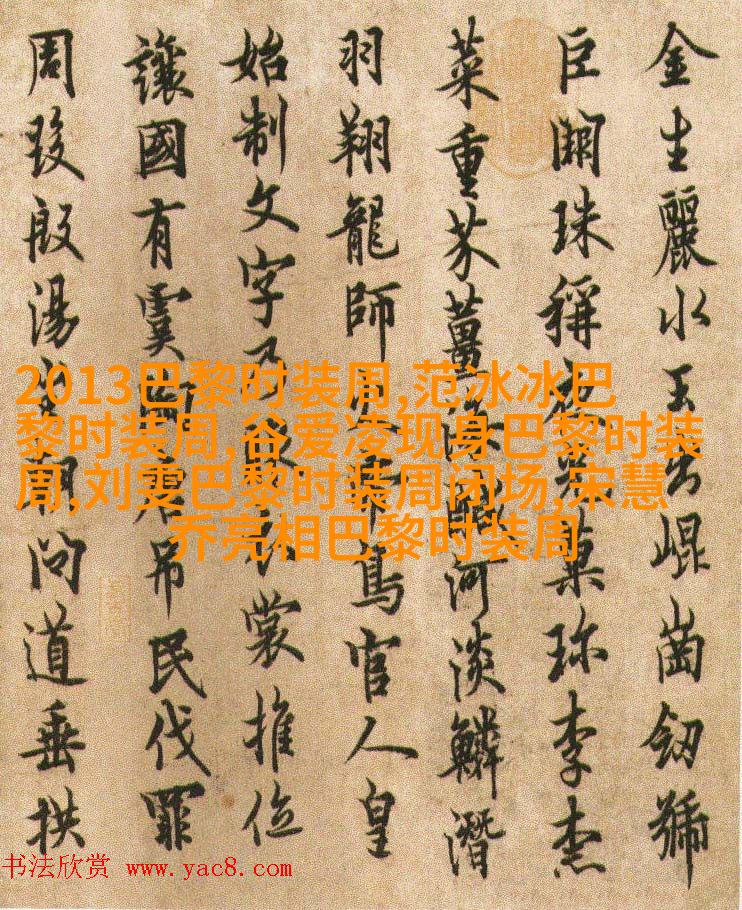 金生麗水玉出崐崗劒號
巨闕珠稱夜光菓珎李柰
菜重芥薑海醎河淡鱗潛
羽翔龍師火帝鳥官人皇
始制文字乃服衣裳推位
讓國有虞陶唐吊民伐罪
周發殷湯坐朝問道垂拱
2013巴黎时装周,范冰冰巴
黎时装周,谷爱凌现身巴黎时装
周,刘雯巴黎时装周闭场,宋慧
乔亮相巴黎时装周
书法欣赏 www.yac8.com